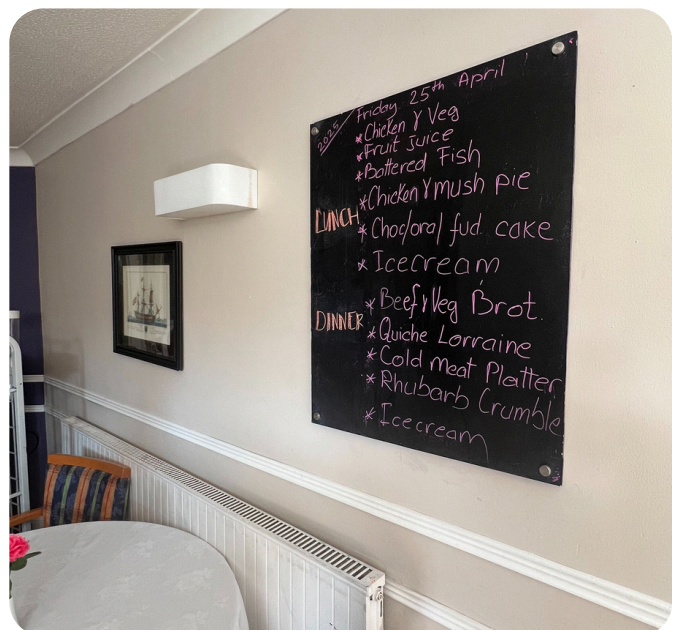 2025 Friday 25th April
*Chicken & Veg
*Fruit Juice
*Battered Fish
*Chicken & mush pie
LUNCH
*Choc/oral fud. cake
*Icecream
*Beef & Veg Brot.
DINNER
*Quiche Lorraine
*Cold Meat Platter
*Rhubarb Crumble
*Icecream